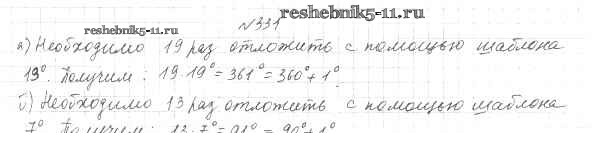 reshebnik5-11.ru
№331
а) Необходимо 19 раз отложить с помощью шаблона
19°. Получим: 19·19°=361°=360°+1°
б) Необходимо 13 раз отложить с помощью шаблона
7° Получим: 13·7°=91°=90°+1°
reshebnik5-11.ru